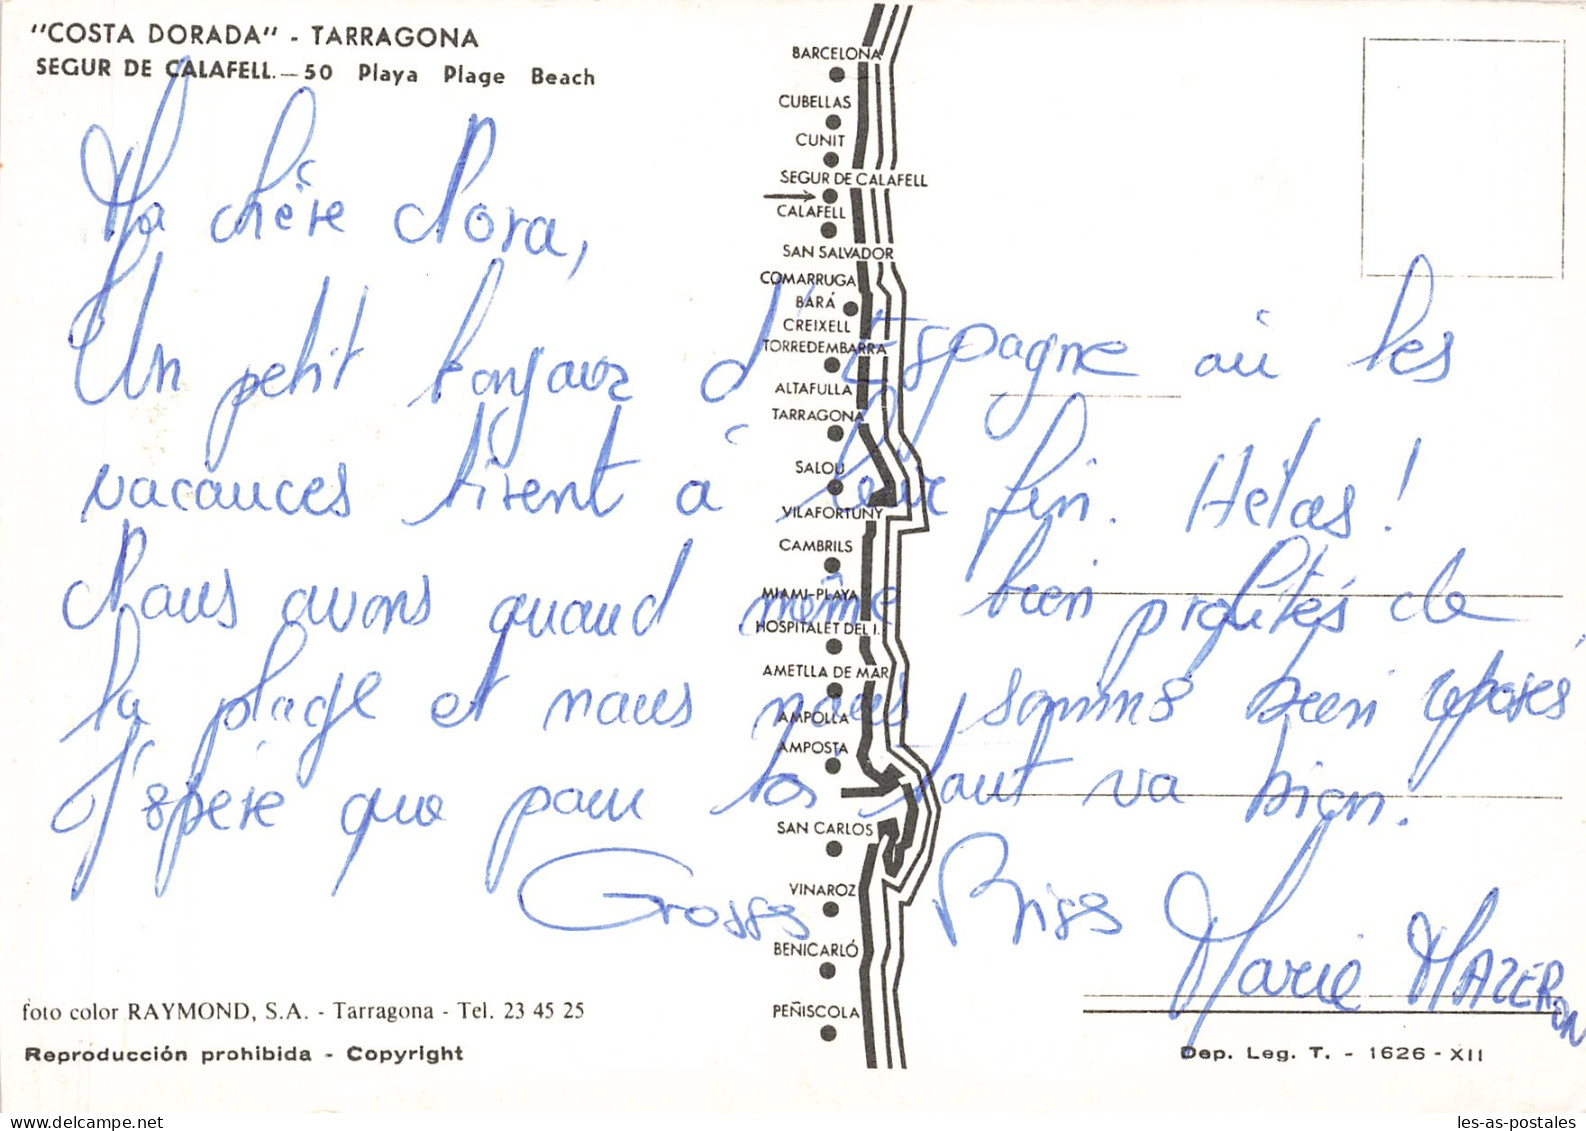 "COSTA DORADA" - TARRAGONA
SEGUR DE CALAFELL.—50 Playa Plage Beach
Ma chère Nora,
Un petit bonjour d'Espagne où les
vacances tirent à leur fin. Hélas!
Nous avons quand même bien profités de
la plage et nous nous sommes bien reposés,
J'espère que pour toi tout va bien.
Grosses Bises
Marie MAZERON
BARCELONA
CUBELLAS
CUNIT
SEGUR DE CALAFELL
CALAFELL
SAN SALVADOR
COMARRUGA
BARÁ
CREIXELL
TORREDEMBARRA
ALTAFULLA
TARRAGONA
SALOU
VILAFORTUNY
CAMBRILS
MIAMI-PLAYA
HOSPITALET DEL I.
AMETLLA DE MAR
AMPOLLA
AMPOSTA
SAN CARLOS
VINAROZ
BENICARLÓ
PEÑISCOLA
foto color RAYMOND, S.A. - Tarragona - Tel. 23 45 25
Reproducción prohibida - Copyright
Dep. Leg. T. - 1626 - XII
les-as-postales